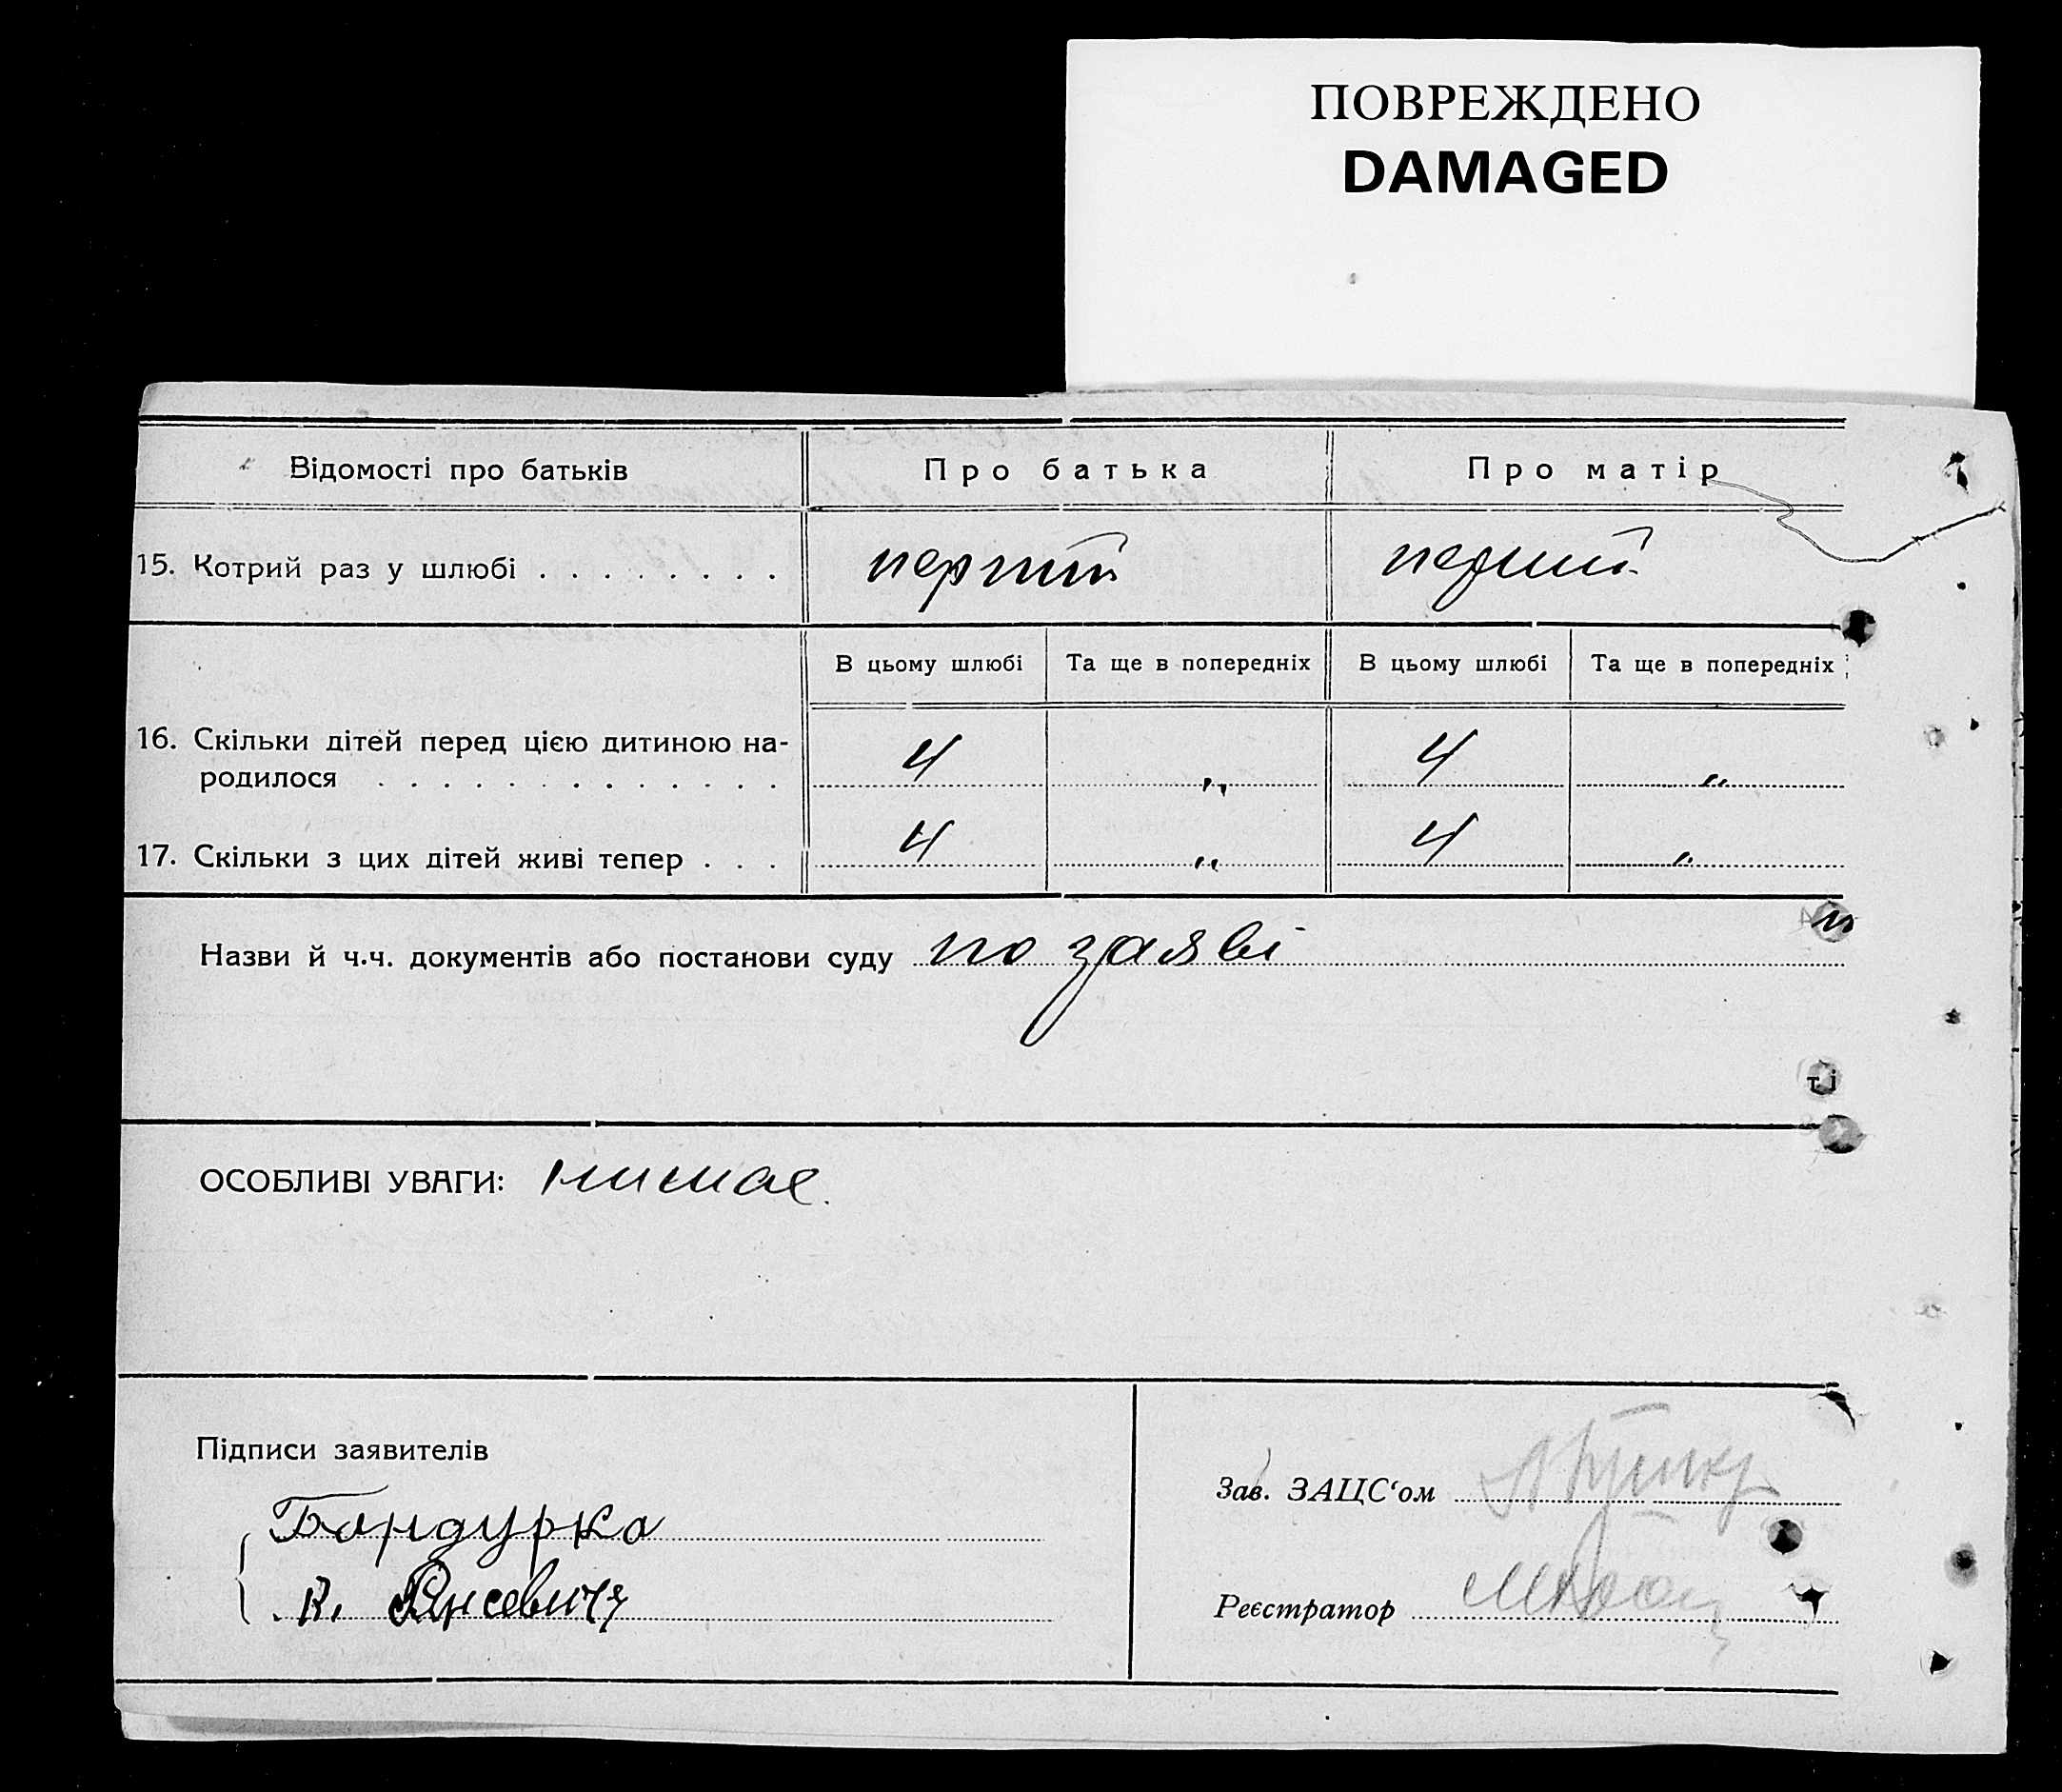 ПОВРЕЖДЕНО
DAMAGED
Відомості про батьків Про батька Про матір
15. Котрий раз у шлюбі . . . . . . . . перший перший
В цьому шлюбі Та ще в попередніх В цьому шлюбі Та ще в попередніх
16. Скільки дітей перед цією дитиною на-
родилося . . . . . . . . . . . . . 4 „ 4 „
17. Скільки з цих дітей живі тепер . . . 4 „ 4 „
Назви й ч.ч. документів або постанови суду по заяві
ті
ОСОБЛИВІ УВАГИ: нимае.
Підписи заявителів
Зав. ЗАЦС‘ом
Бондурко
Реєстратор